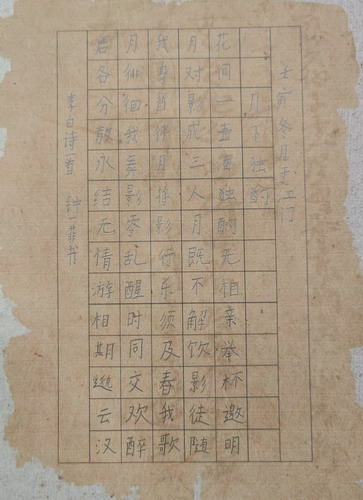 壬寅冬月于江门
月下独酌
花间一壶酒独酌无相亲举杯邀明
月对影成三人月既不解饮影徒随
我身暂伴月将影行乐须及春我歌
月徘徊我舞影零乱醒时同交欢醉
后各分散永结无情游相期邈云汉
李白诗首 钟一菲书